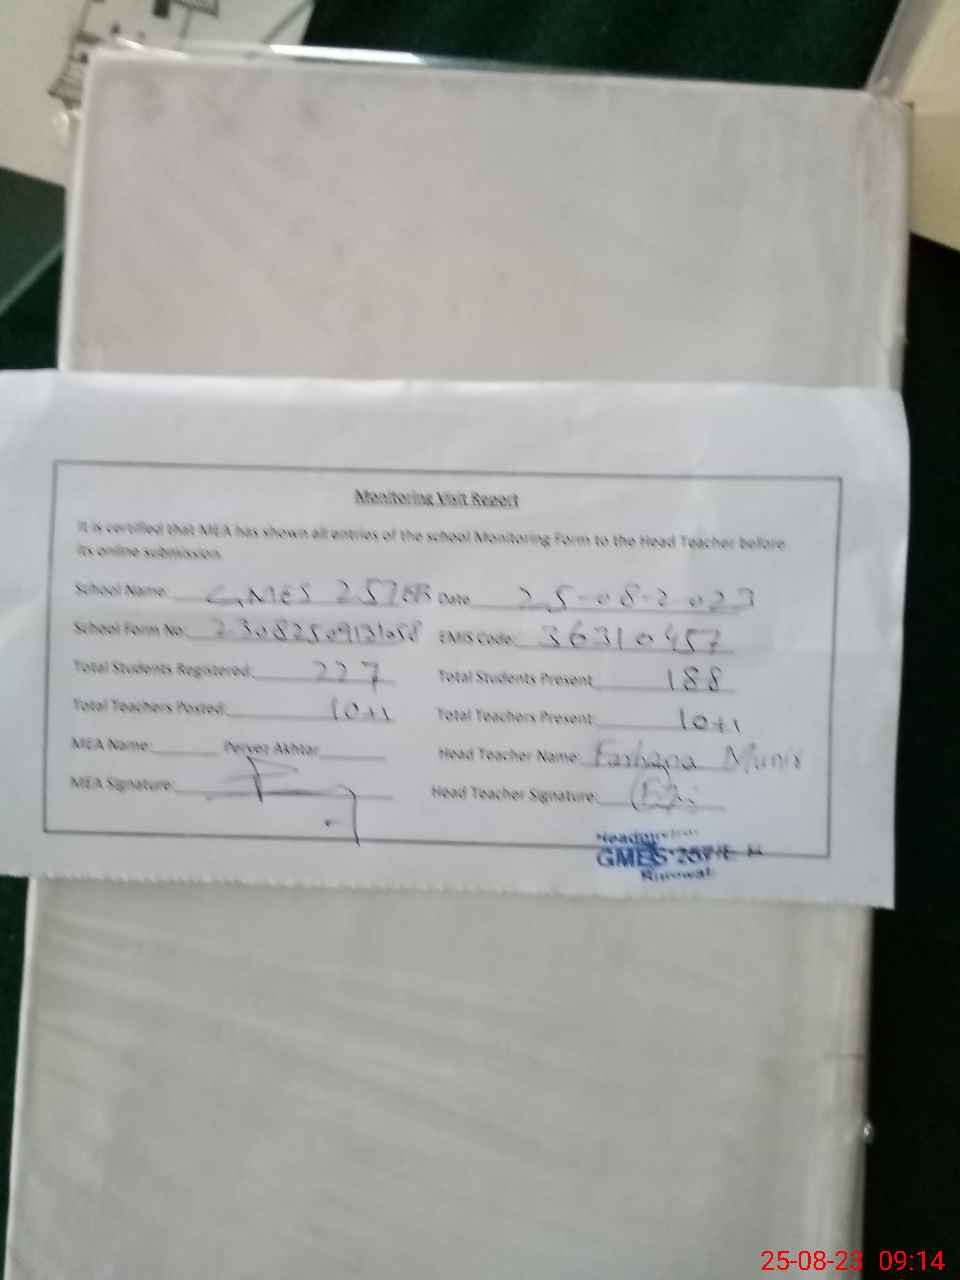 Monitoring Visit Report
It is certified that MEA has shown all entries of the school Monitoring Form to the Head Teacher before
its online submission.
School Name: GMES 257EB Date 25-08-2023
School Form No: 23082509131058 EMIS Code: 36310457
Total Students Registered: 227 Total Students Present 188
Total Teachers Posted: 10+1 Total Teachers Present: 10+1
MEA Name: Pervez Akhtar Head Teacher Name: Farhana Munir
MEA Signature: Head Teacher Signature:
GMES 257
25-08-23 09:14